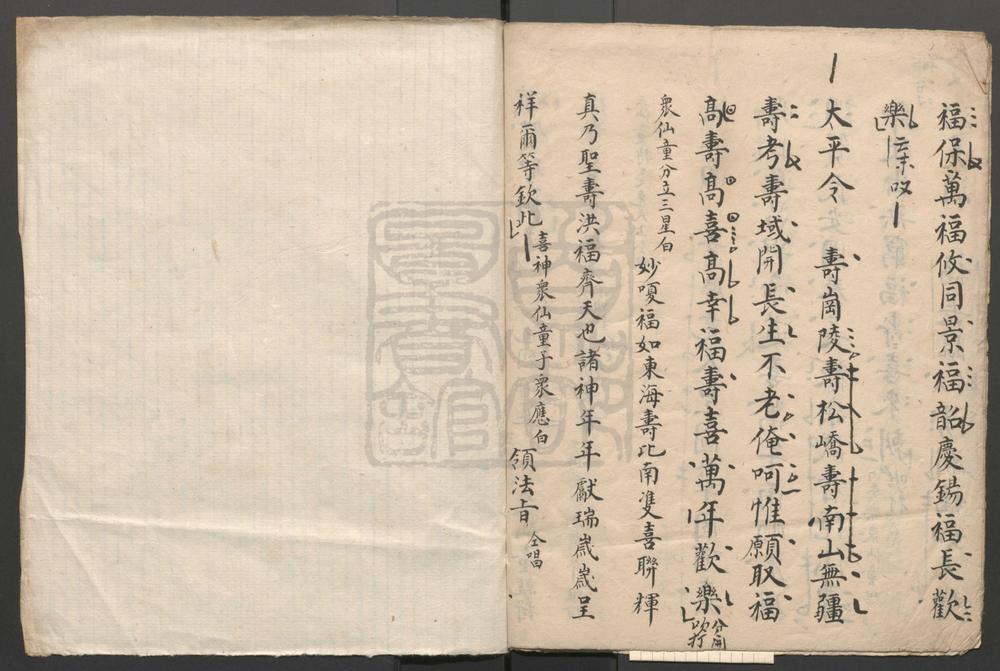 福保萬福攸同景福韶慶錫福長歡
樂
太平令 壽崗陵壽松嶠壽南山無疆
壽考壽域開長生不老俺呵惟願取福
高壽高喜高幸福壽喜萬年歡樂 分開吹打
衆仙童分立三星白 妙嗄福如東海壽比南雙喜聯輝
真乃聖壽洪福齊天也諸神年年獻瑞歲歲呈
祥爾等欽此 喜神衆仙童子衆應白 領法旨 仝唱